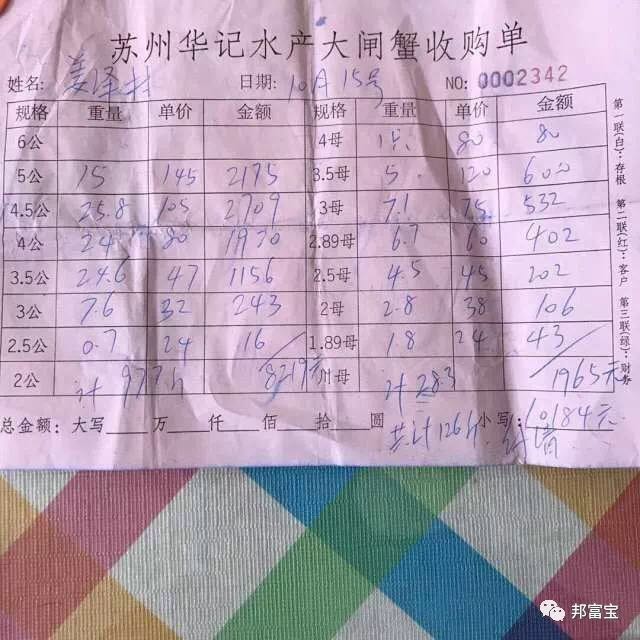 苏州华记水产大闸蟹收购单
姓名: 姜泽林 日期: 10月15号 NO: 0002342
规格 重量 单价 金额 规格 重量 单价 金额
6公 4母 80 80
5公 15 145 2175 3.5母 5 120 600
4.5公 25.8 105 2709 3母 7.1 75 532
4公 24 80 1920 2.89母 6.7 60 402
3.5公 24.6 47 1156 2.5母 4.5 45 202
3公 7.6 32 243 2母 2.8 38 106
2.5公 0.7 24 16 1.89母 1.8 24 43
2公 计 97.7斤 8219元 母 计 28.3 1965元
总金额: 大写 万 仟 佰 拾 圆 小写: 10184元
共计126斤
第一联(白):存根 第二联(红):客户 第三联(绿):财务
邦富宝